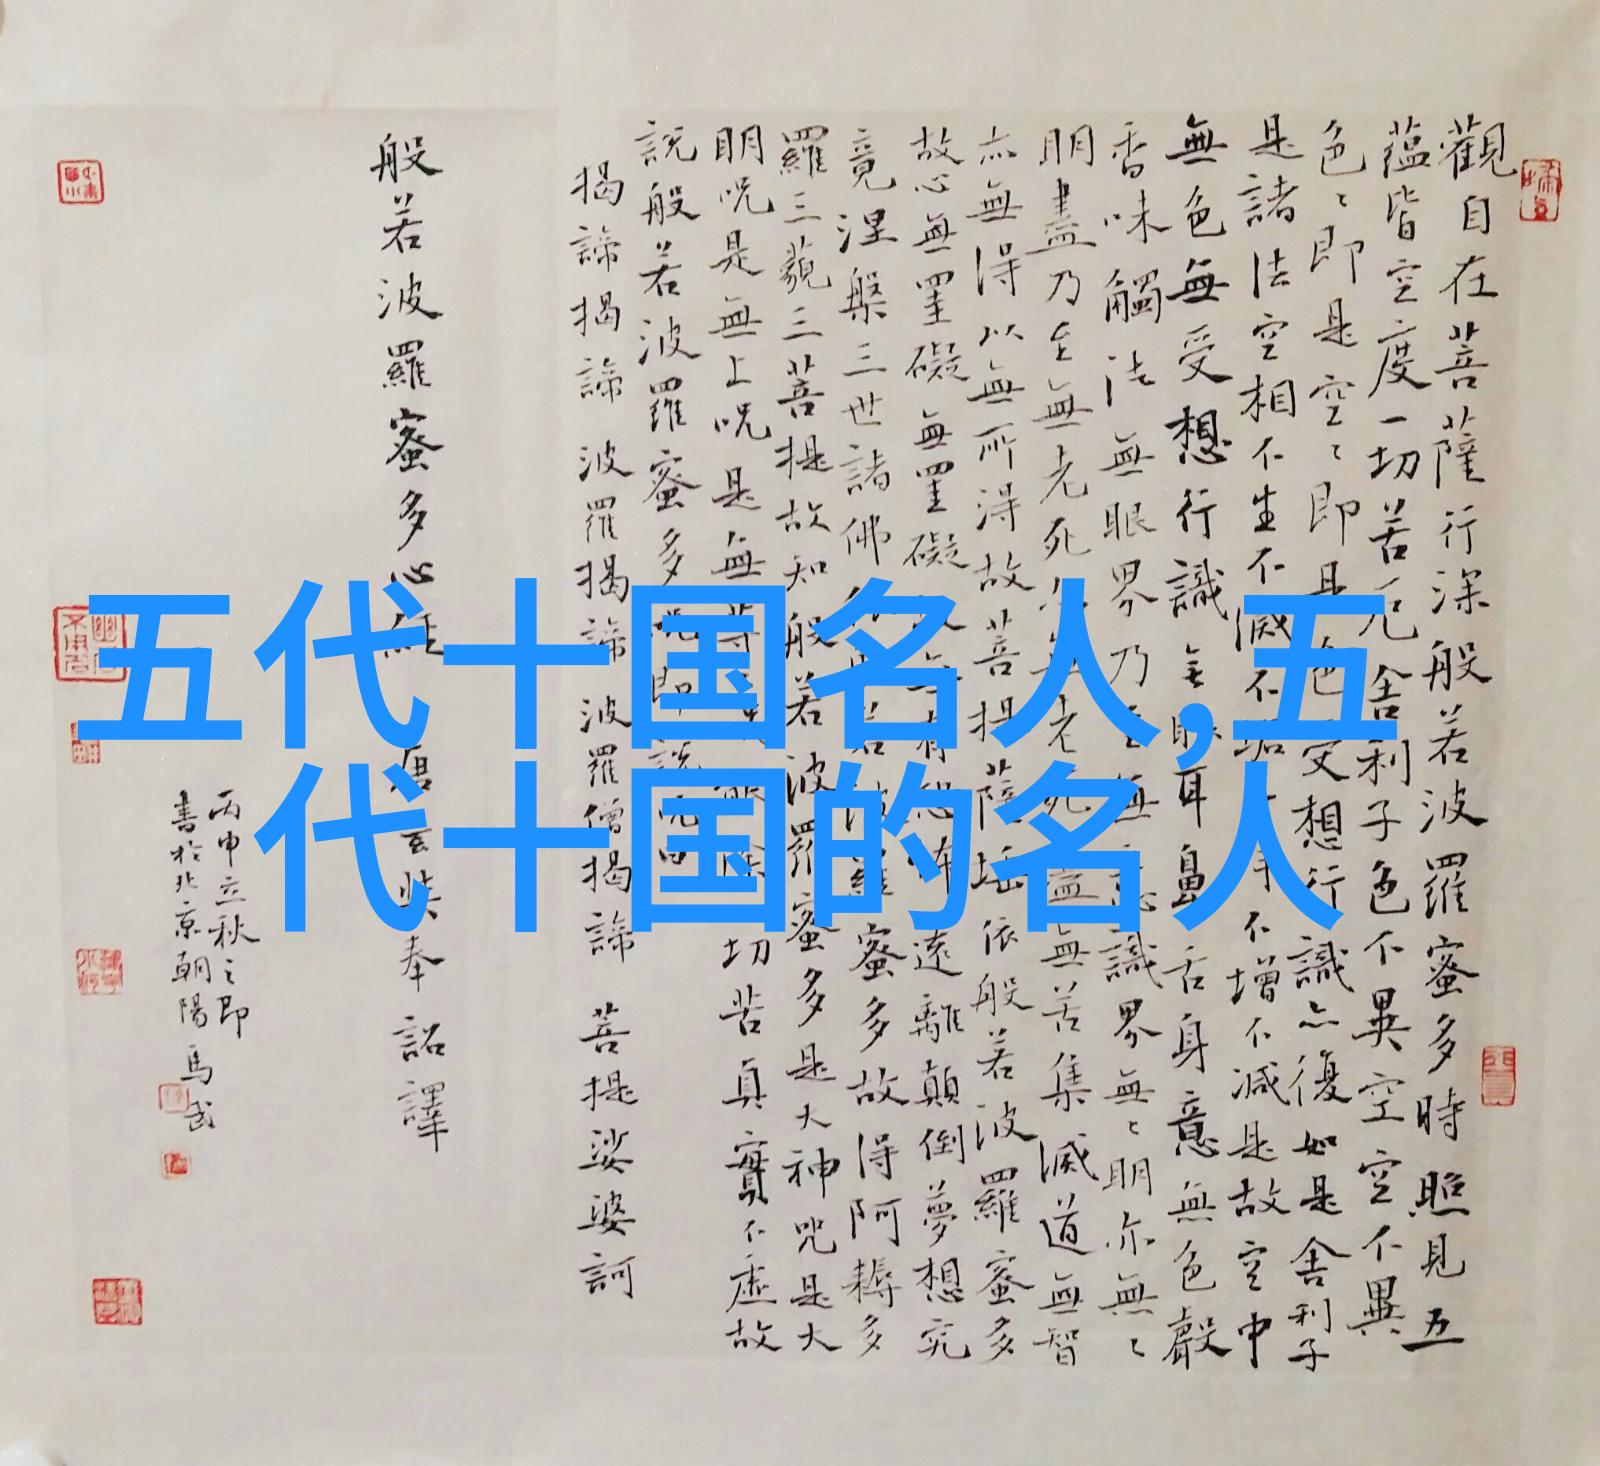 五代十国名人,五
代十国的名人
觀自在菩薩行深般若波羅蜜多時照見五
蘊皆空度一切苦厄舍利子色不異空空不異
色〻即是空〻即是色受想行識亦復如是舍利子
是諸法空相不生不滅不垢不淨不增不減是故空中
無色無受想行識無眼耳鼻舌身意無色聲
香味觸法無眼界乃至無意識界無〻明亦無〻
明盡乃至無老死亦無老死盡無苦集滅道無智
亦無得以無所得故菩提薩埵依般若波羅蜜多
故心無罣礙無罣礙故無有恐怖遠離顛倒夢想究
竟涅槃三世諸佛依般若波羅蜜多故得阿耨多
羅三藐三菩提故知般若波羅蜜多是大神咒是大
明咒是無上咒是無等等咒能除一切苦真實不虛故
說般若波羅蜜多咒即說咒曰
揭諦揭諦 波羅揭諦 波羅僧揭諦 菩提娑婆訶
般若波羅蜜多心經 唐玄奘奉詔譯
丙申立秋之即
書於北京朝陽 馬